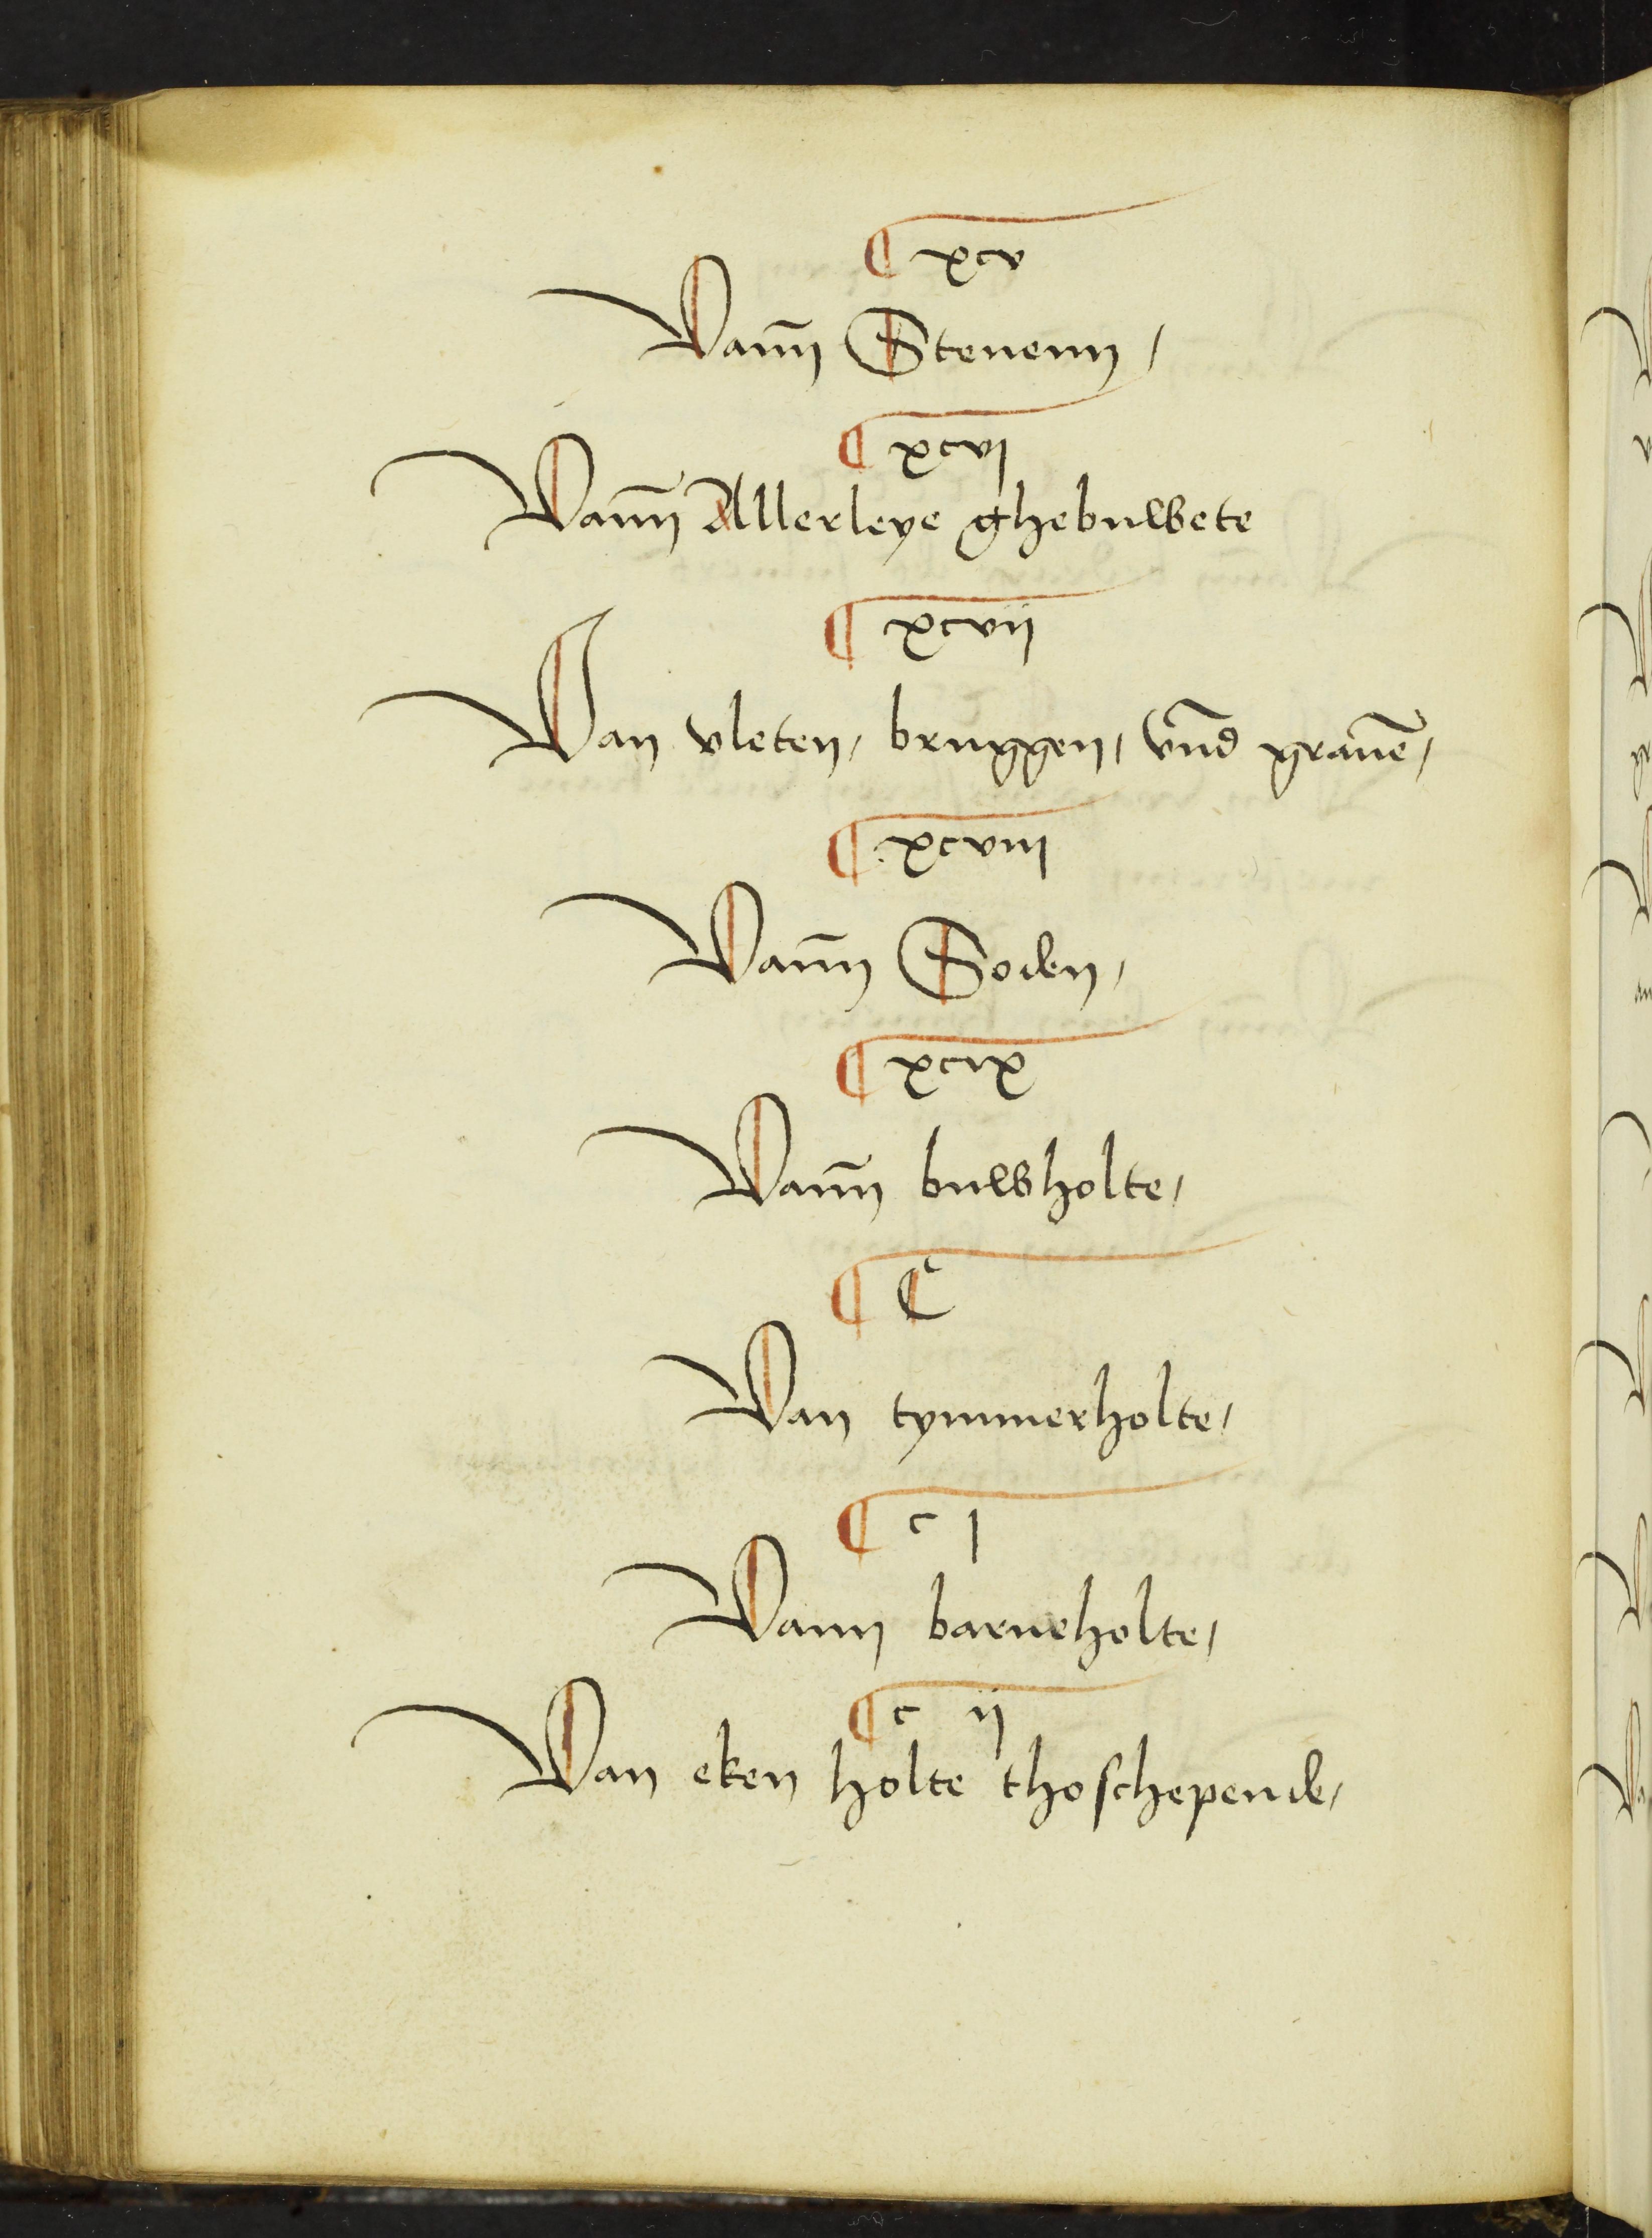 ¶ xcv
Vann̄ Stenenn /
¶ xcvi
Vann̄ Allerleye ghebuwete
¶ xcvii
Van vleten / bruggen / vn̄d grauē /
¶ xcviii
Vann̄ Soden /
¶ xcix
Vann̄ buwholte /
¶ C
Van tymmerholte /
¶ c i
Vann barneholte /
¶ c ii
Van eken holte thoschepende /